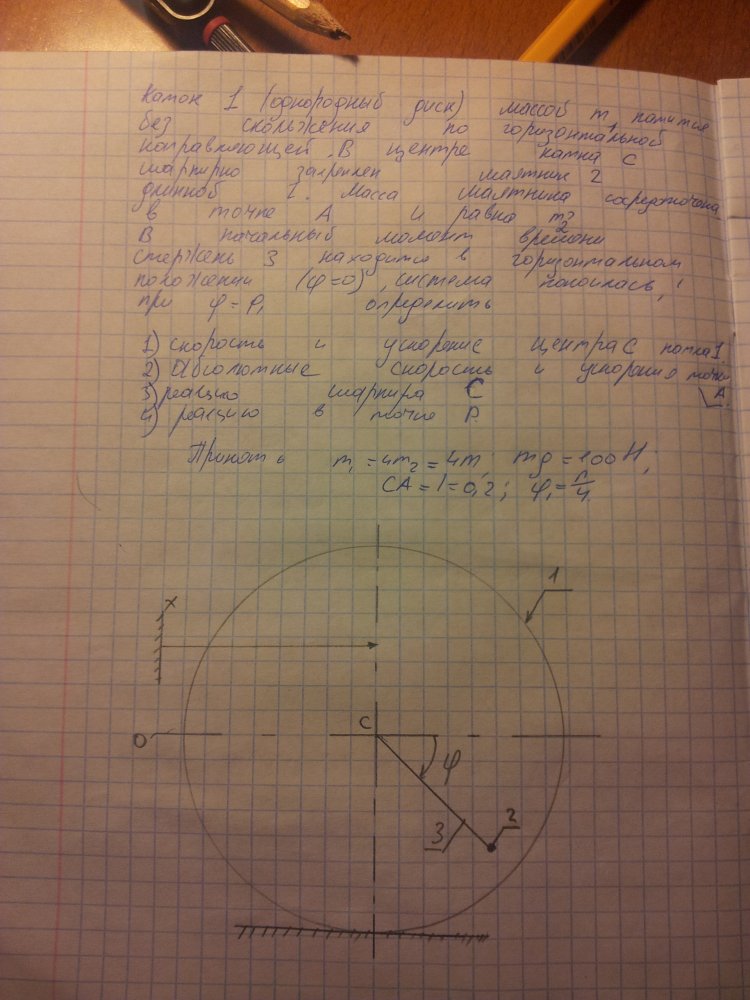 Каток 1 (однородный диск) массой m₁ катится
без скольжения по горизонтальной
направляющей. В центре катка C
шарнирно закреплен маятник 2
длинной l. Масса маятника сосредоточена
в точке A и равна m₂
В начальный момент времени
стержень 3 находится в горизонтальном
положении (φ=0), система покоилась,
при φ=φ₁ определить
1) скорость и ускорение центра C катка 1.
2) Абсолютные скорость и ускорения точки A.
3) реакцию шарнира C
4) реакцию в точке P.
Принять m₁=4m₂=4m; mg=100H;
CA=l=0,2; φ₁=π/4
1
x
C
O
φ
2
3